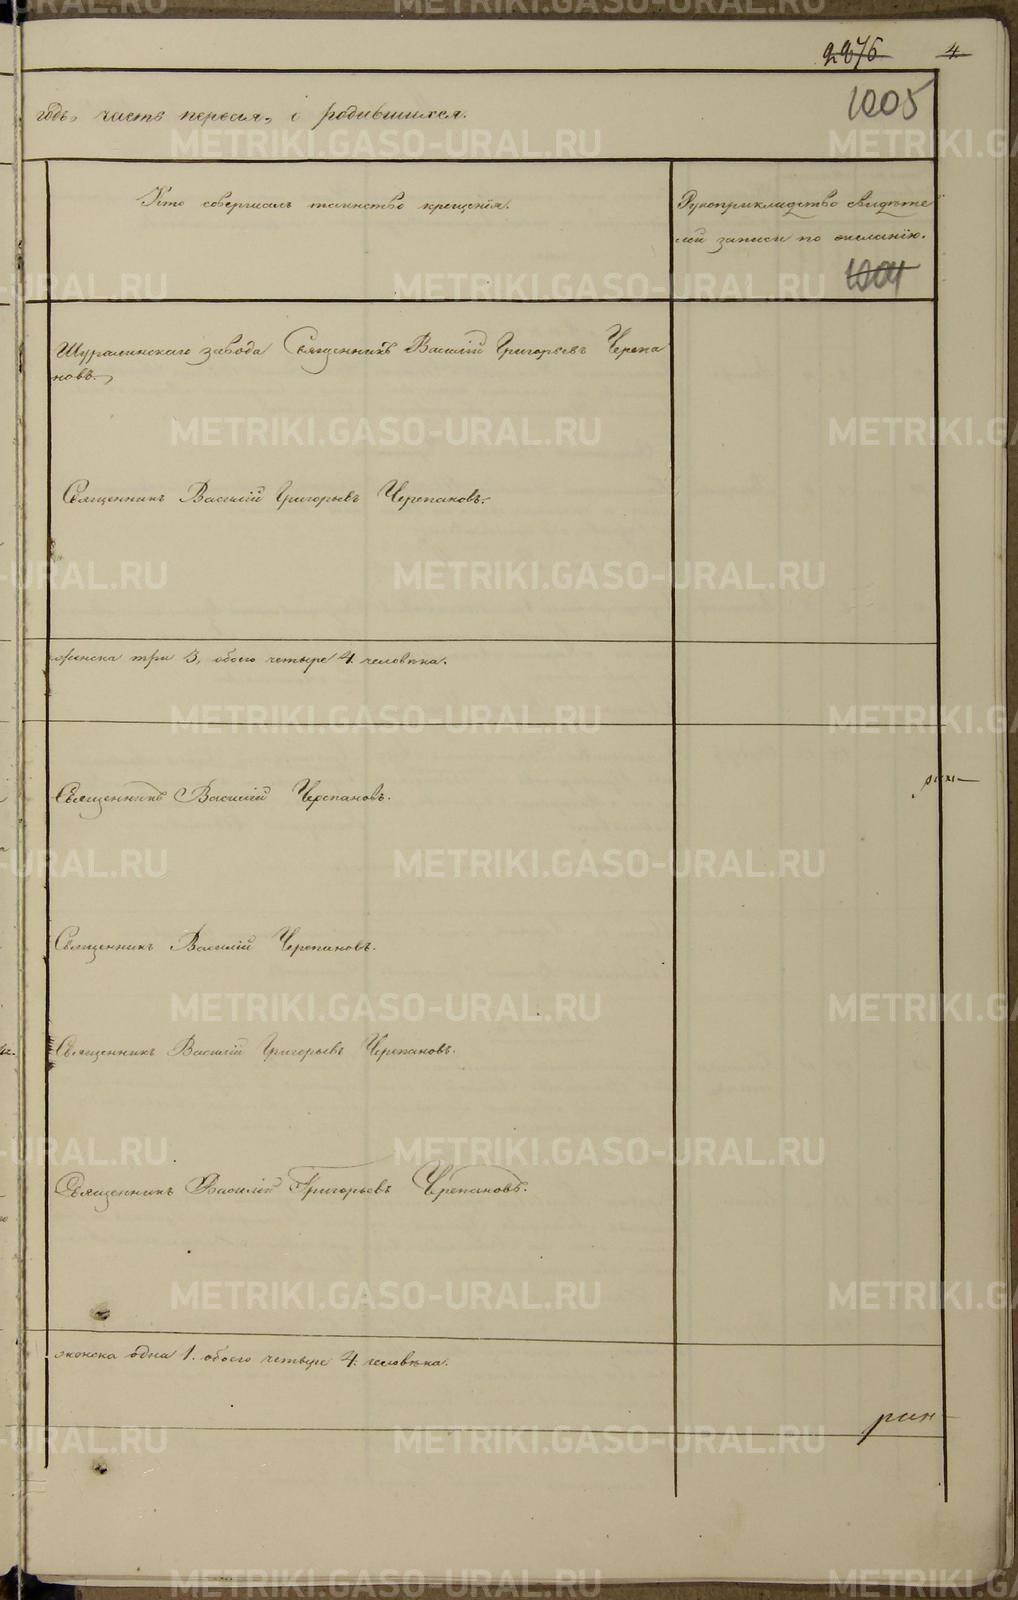 2276 4
1005
годъ, часть первая, о родившихся.
Кто совершалъ таинство крещенія.
Рукоприкладство свидѣте
лей записи по желанію.
1004
Шуралинскаго завода Священникъ Василій Григорьевъ Черепа
новъ.
Священникъ Василій Григорьевъ Черепановъ.
женска три 3, обоего четыре 4 человѣка.
Священникъ Василій Черепановъ.
Священникъ Василій Черепановъ.
Священникъ Василій Григорьевъ Черепановъ.
Священникъ Василій Григорьевъ Черепановъ.
женска одна 1. обоего четыре 4. человѣка.
METRIKI.GASO-URAL.RU